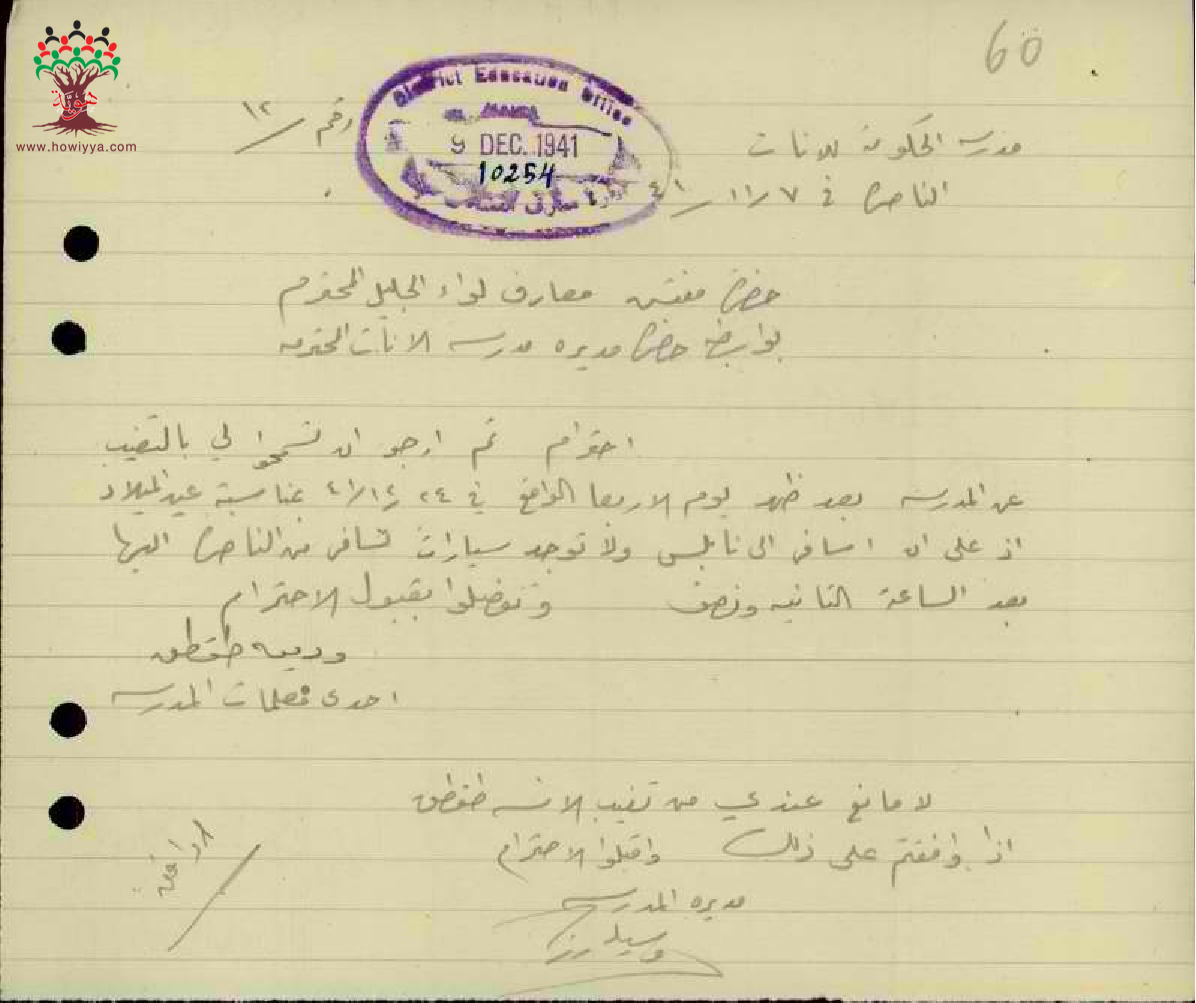 60
هوية
www.howiyya.com
District Education Office
9 DEC. 1941
10254
رقم / ١٢
مدرسة الحكومة للاناث
الناصرة في ٧ / ١١ / ٤١
حضرة مفتش معارف لواء الجليل المحترم
بواسطة حضرة مديره مدرسه الاناث المحترمه
احترام ثم ارجو ان تسمحوا لي بالتغيب
عن المدرسه بعد ظهر يوم الاربعا الواقع في ٢٤ / ١٢ / ٤١ بمناسبة عيد الميلاد
اذ على ان اسافر الى نابلس ولا توجد سيارات تسافر من الناصرة اليها
بعد الساعة الثانيه ونصف وتفضلوا بقبول الاحترام
وديعه طقطق
احدى معلمات المدرسه
لا مانع عندي من تغيب الانسه طقطق
اذا وافقتم على ذلك واقبلوا الاحترام
مديره المدرسه